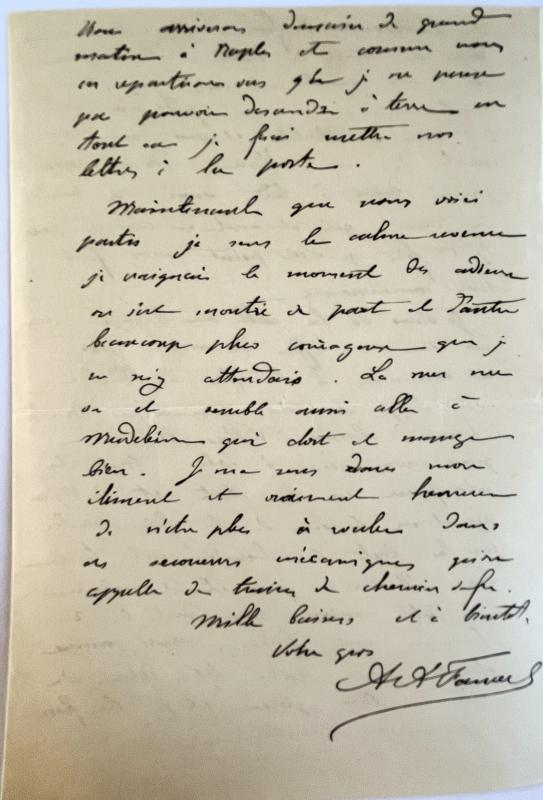 Nous arriverons demain de grand
matin à Naples et comme nous
en repartirons vers 9h je ne pense
pas pouvoir descendre à terre en
tout cas je ferai mettre nos
lettres à la poste.
Maintenant que nous voici
partis je sens le calme revenir
je craignais le moment des adieux
on s'est montré de part et d'autre
beaucoup plus courageux que je
ne m'y attendais. La mer me
va et semble aussi aller à
Madeleine qui dort et mange
bien. Je me sens dans mon
élément et vraiment heureux
de n'être plus à rouler dans
ces secoueurs mécaniques qu'on
appelle des trains de chemin de fer.
Mille baisers et à bientôt.
Votre gros